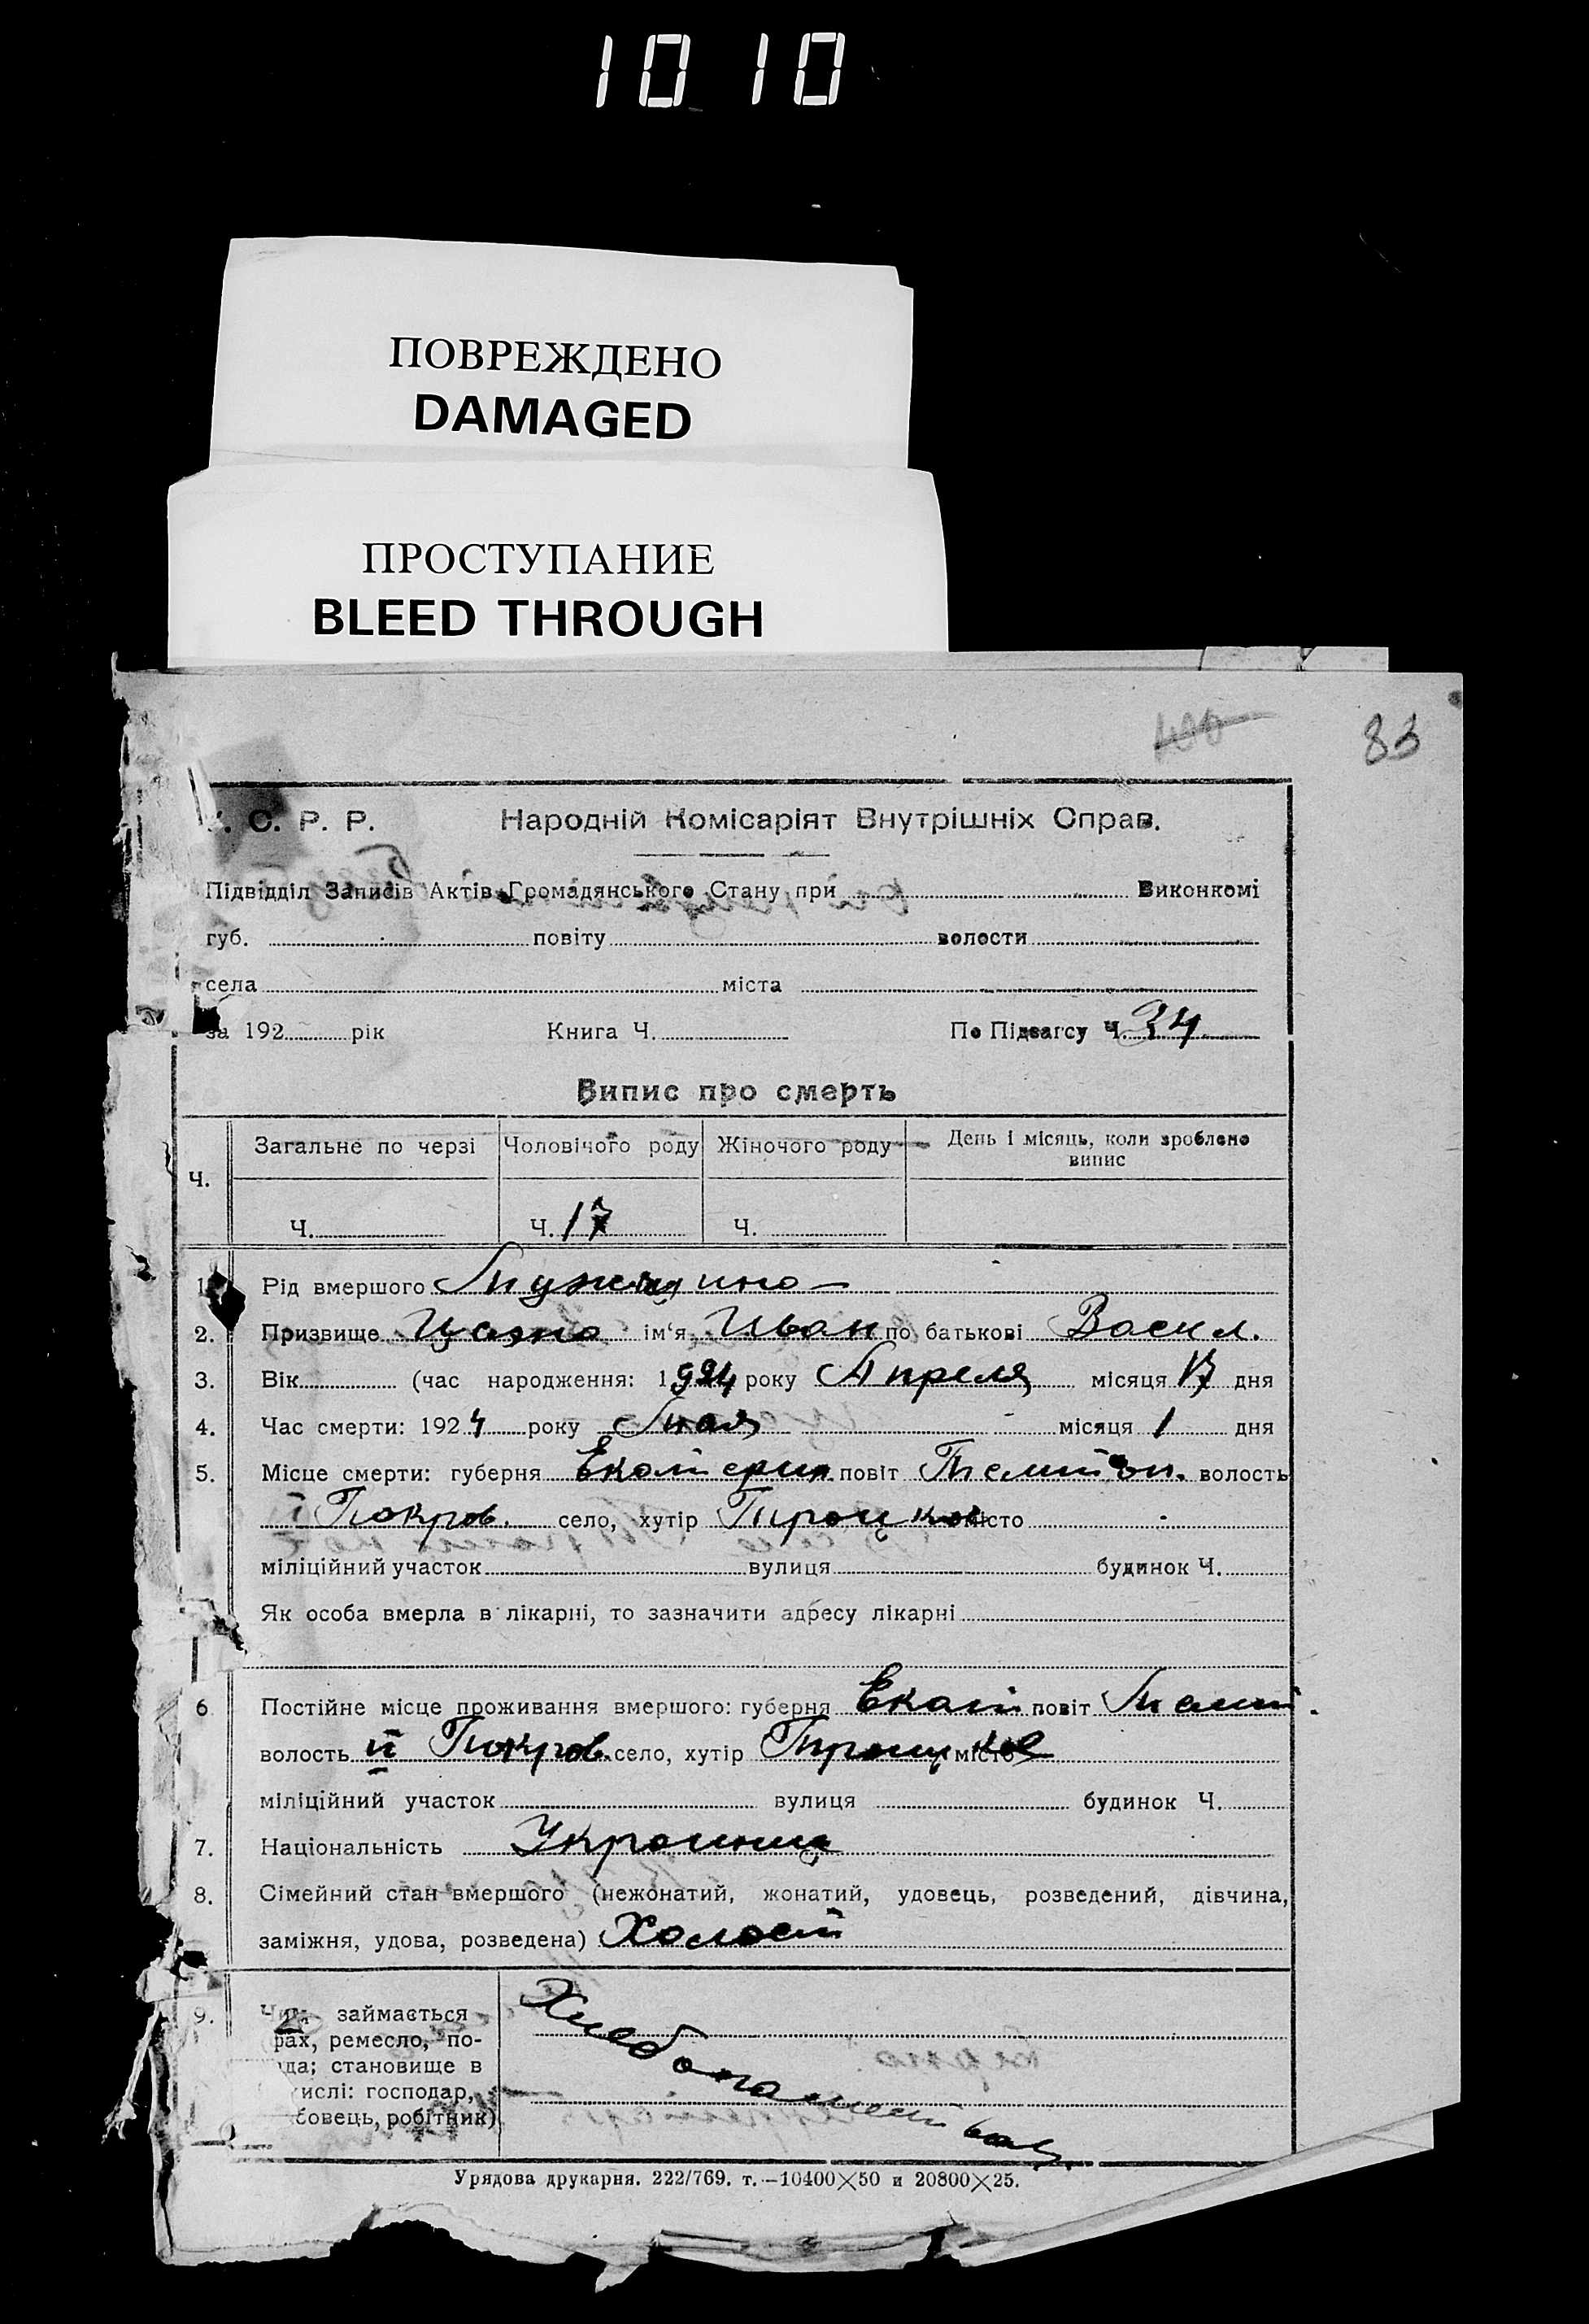 10 10
ПОВРЕЖДЕНО
DAMAGED
ПРОСТУПАНИЕ
BLEED THROUGH
400 83
. С. Р. Р. Народній Комісаріят Внутрішніх Справ.
Підвідділ Записів Актів Громадянського Стану при Виконкомі
губ. повіту волости
села міста
за 192 рік Книга Ч. По Підзагсу Ч. 34
Випис про смерть
Ч. Загальне по черзі Чоловічого роду Жіночого роду День і місяць, коли зроблено
випис
Ч. Ч. 17 Ч.
1 Рід вмершого Мужчина
2. Призвище ім'я Иван по батькові Васил.
3. Вік (час народження: 1924 року Апреля місяця 17 дня
4. Час смерти: 1924 року Мая місяця 1 дня
5. Місце смерти: губерня Екатерин повіт волость
Покров. село, хутір Троцкое місто
міліційний участок вулиця будинок Ч.
Як особа вмерла в лікарні, то зазначити адресу лікарні
6 Постійне місце проживання вмершого: губерня Екат. повіт
волость ІІ Покров. село, хутір Троцкое місто
міліційний участок вулиця будинок Ч.
7. Національність Украинец
8. Сімейний стан вмершого (нежонатий, жонатий, удовець, розведений, дівчина,
заміжня, удова, розведена) Холост
9. Чим займається
рах, ремесло, по-
да; становище в
ислі: господар,
бовець, робітник)
Хлебопашество
Урядова друкарня. 222/769. т.—10400×50 и 20800×25.